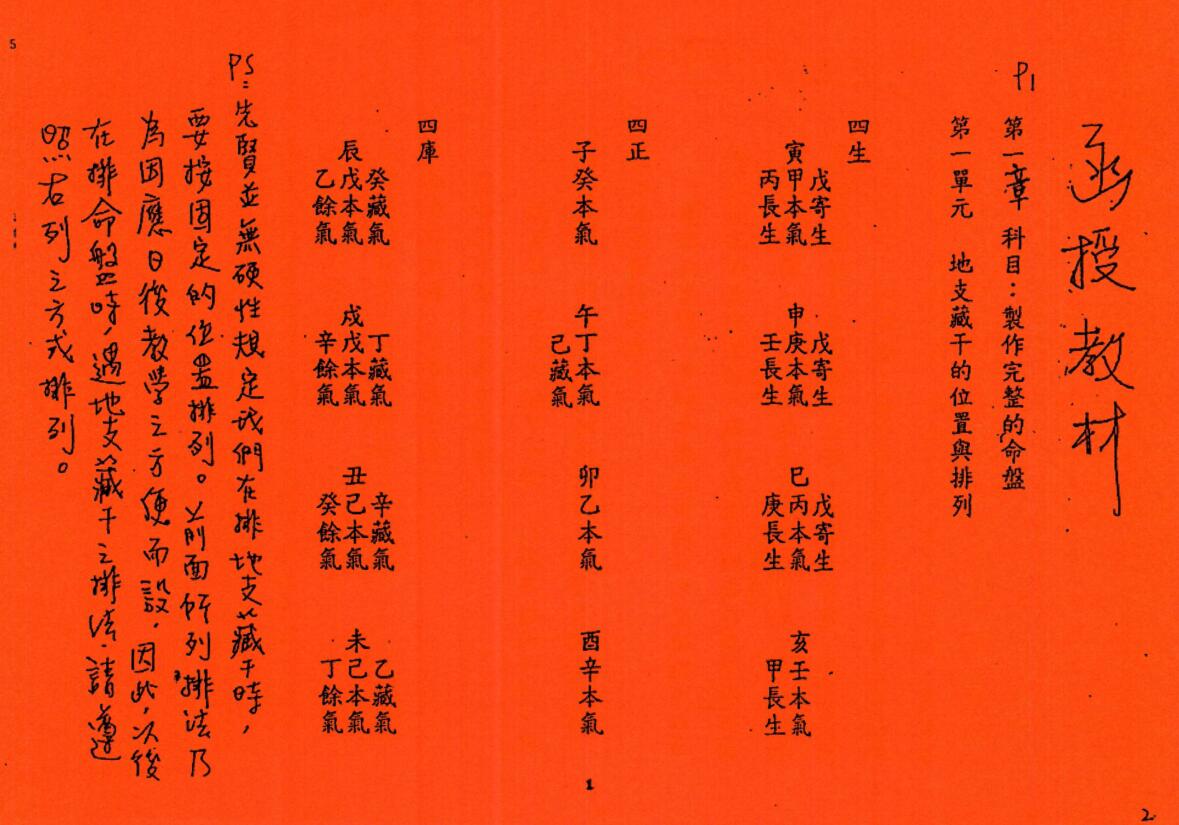 函授教材
P1
第一章 科目：製作完整的命盤
第一單元 地支藏干的位置與排列
四生
戊寄生
寅甲本氣
丙長生
戊寄生
申庚本氣
壬長生
戊寄生
巳丙本氣
庚長生
亥壬本氣
甲長生
四正
子癸本氣
午丁本氣
己藏氣
卯乙本氣
酉辛本氣
四庫
癸藏氣
辰戊本氣
乙餘氣
丁藏氣
戌戊本氣
辛餘氣
辛藏氣
丑己本氣
癸餘氣
乙藏氣
未己本氣
丁餘氣
PS：先賢並無硬性規定我們在排地支藏干時，
要按固定的位置排列。前面所列排法乃
為因應日後教學之方便而設，因此，以後
在排命盤時，遇地支藏干之排法，請遵
照右列之方式排列。
1
2
5